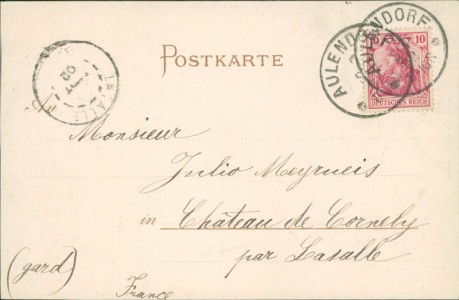 POSTKARTE
AULENDORF
AULENDORF
10
DEUTSCHES REICH
LASALLE
02
An
Monsieur
Julio Meyrueis
in Château de Cornely
par Lasalle
(gard)
France